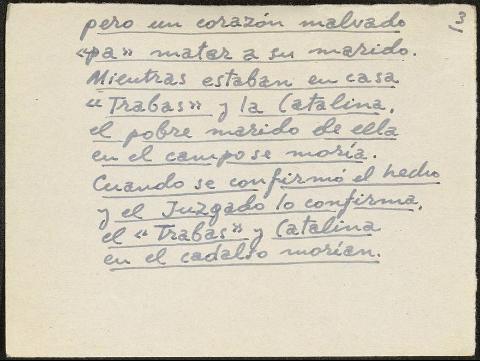 13
pero un corazón malvado
«pa» matar a su marido.
Mientras estaban en casa
"Trabas» y la Catalina,
el pobre marido de ella
en el campo se moría.
Cuando se confirmó el hecho
y el Juzgado lo confirma,
el «Trabas» y Catalina
en el cadalso morían.